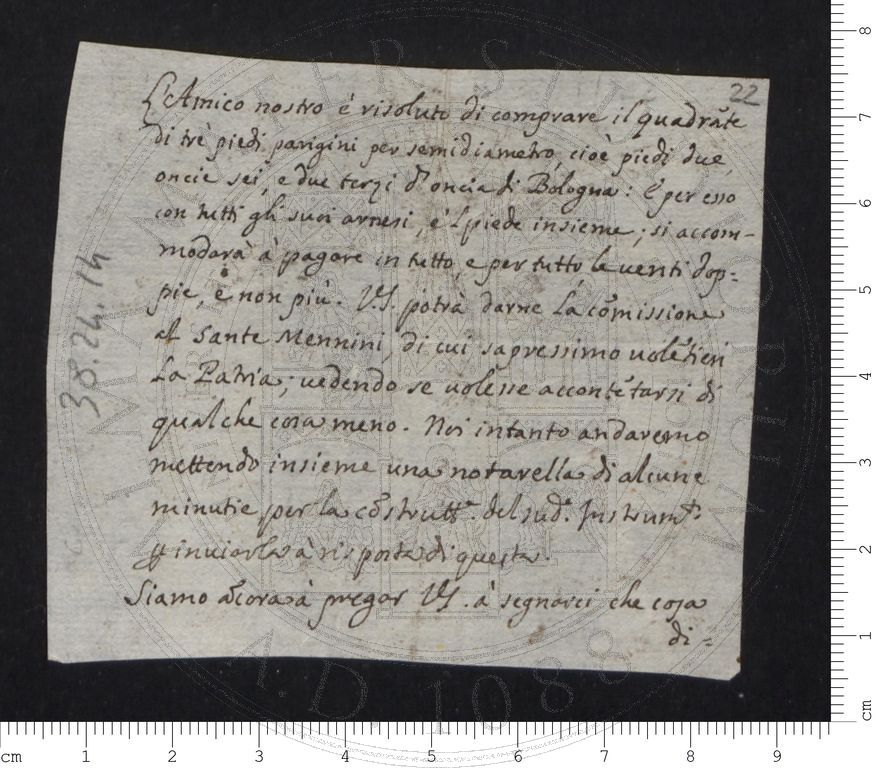 22
L'Amico nostro è risoluto di comprare il quadrãte
di trè piedi parigini per semidiametro, cioè piedi due,
oncie sei, e due terzi d'oncia di Bologna: E per esso
con tutti gli suoi arnesi, e 'l piede insieme; si accom-
modarà à pagare in tutto, e per tutto le venti dop=
pie, e non più. V.S. potrà darne la cõmissione
al Sante Mennini, di cui sapressimo volẽtieri
La Patria; vedendo se volesse accontẽtarsi di
qualche cosa meno. Noi intanto andaremo
mettendo insieme una notarella di alcune
minutie per la cõstrutt.e del sud.o Instrum.to
inviarla à risposta di questa.
Siamo ãcora à pregar VS. à segnarci che cosa
di=
38.24.14
cm 1 2 3 4 5 6 7 8 9
8
7
6
5
4
3
2
1
cm
A.D. 1088